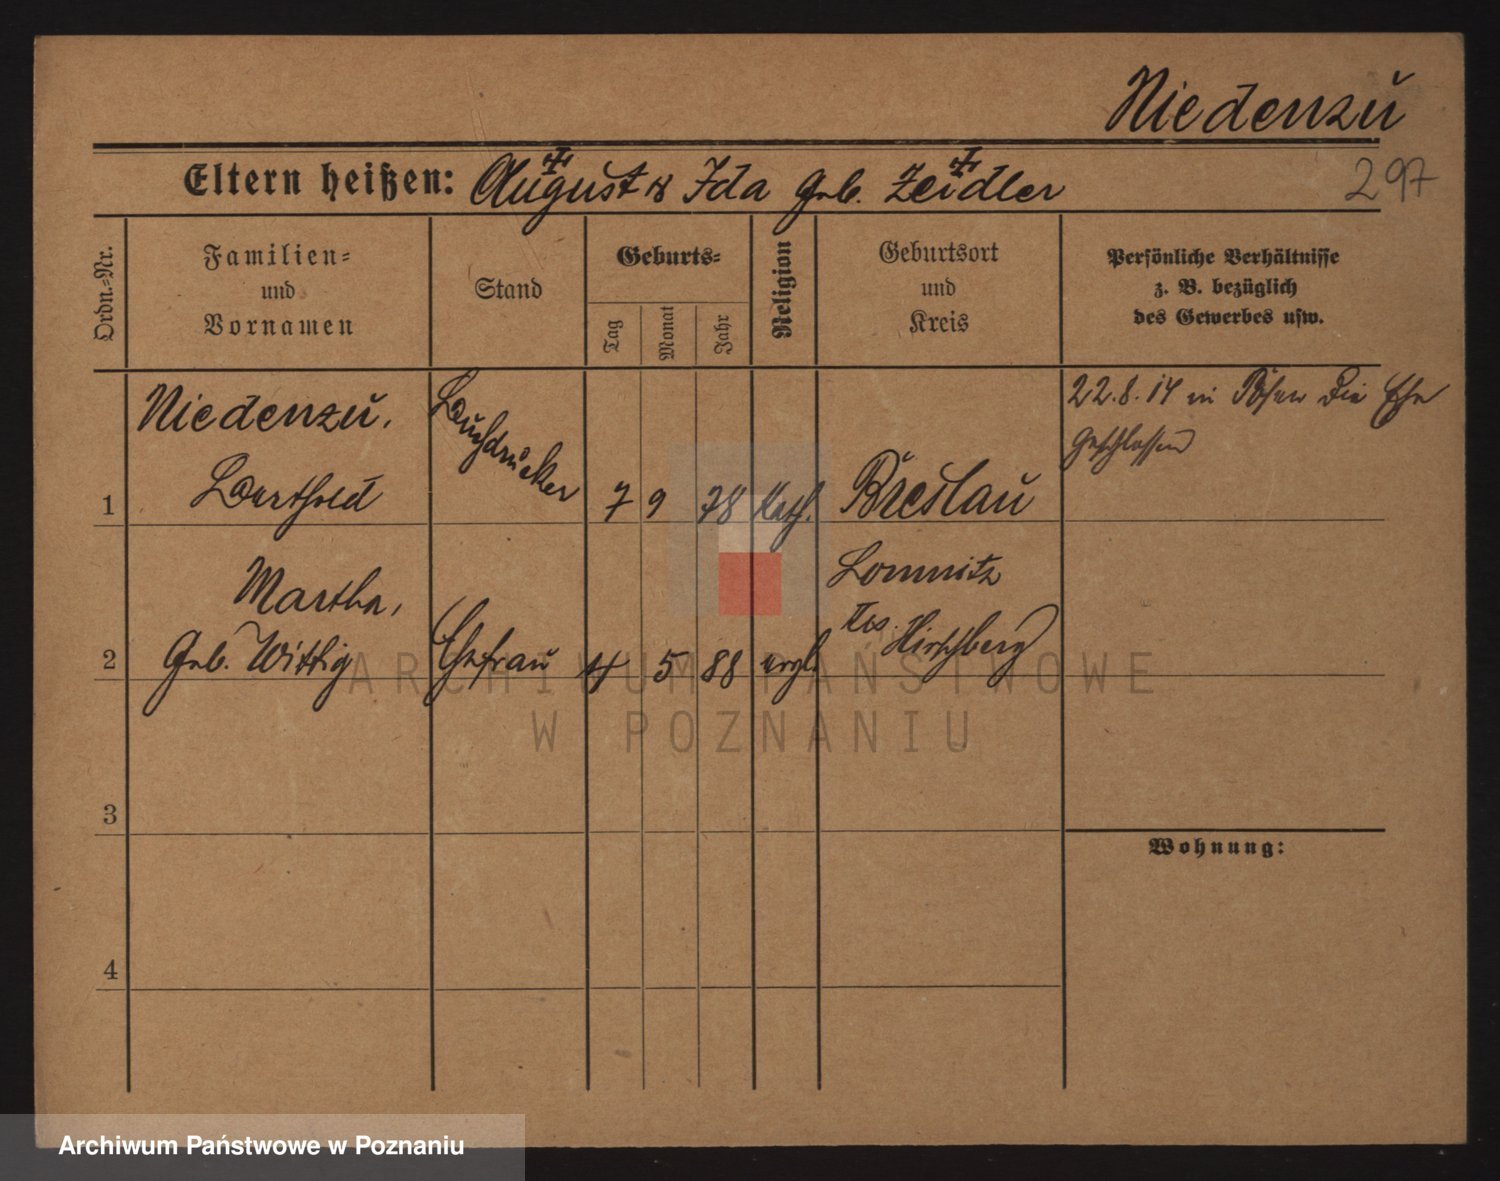 Niedenzu
297
Eltern heißen: August & Ida geb. Zeidler
Ordn.-Nr.
Familien-
und
Vornamen
Stand
Geburts-
Tag
Monat
Jahr
Religion
Geburtsort
und
Kreis
Persönliche Verhältnisse
z. B. bezüglich
des Gewerbes usw.
1
Niedenzu,
Berthold
Buchdrucker
7 9 78 kath.
Breslau
22.8.14 in Posen die Ehe
geschlossen
2
Martha,
geb. Wittig
Ehefrau
4 5 88 evgl.
Lomnitz
Krs. Hirschberg
3
Wohnung:
4
ARCHIWUM PAŃSTWOWE
W POZNANIU
Archiwum Państwowe w Poznaniu